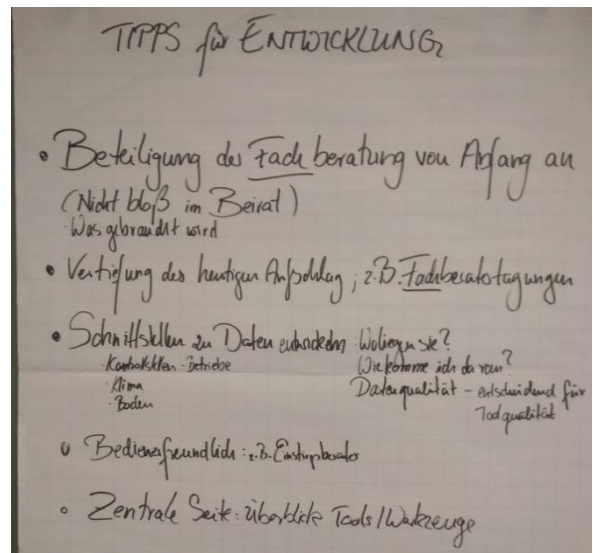 TIPPS für ENTWICKLUNG
• Beteiligung der Fachberatung von Anfang an
(Nicht bloß im Beirat)
· Was gebraucht wird
• Vertiefung des heutigen Aufschlag; z.B. Fachberatertagungen
• Schnittstellen zu Daten entwickeln: Wo liegen sie?
· Kontrollstellen - Betriebe Wie komme ich da ran?
· Klima Datenqualität – entscheidend für
· Boden Toolqualität
• Bedienerfreundlich: z.B. Einstiegsberater
• Zentrale Seite: überblick Tools/Werkzeuge